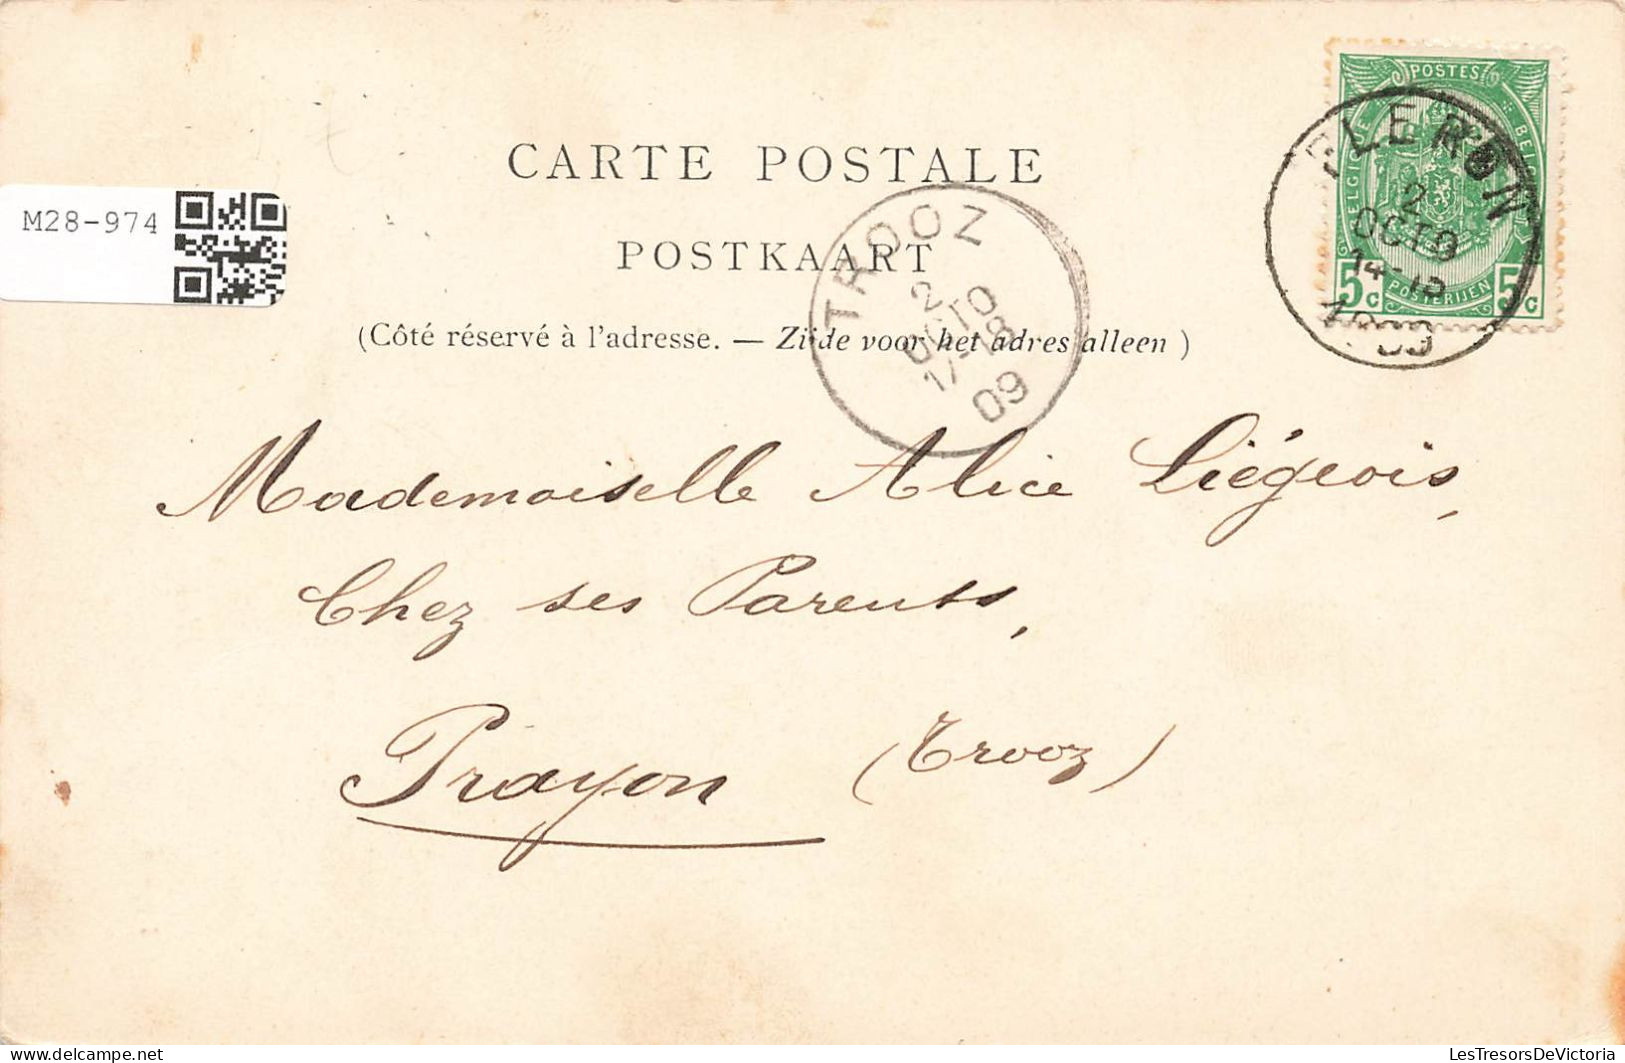 CARTE POSTALE
POSTKAART
(Côté réservé à l'adresse. — Zijde voor het adres alleen )
M28-974
POSTES
BELGIQUE
BELGIË
5c POSTERIJEN 5c
FLERON
2
OCTO
14-15
TROOZ
2
OCTO
17-18
09
Mademoiselle Alice Liégeois,
Chez ses Parents,
Prayon (Trooz)
LesTresorsDeVictoria